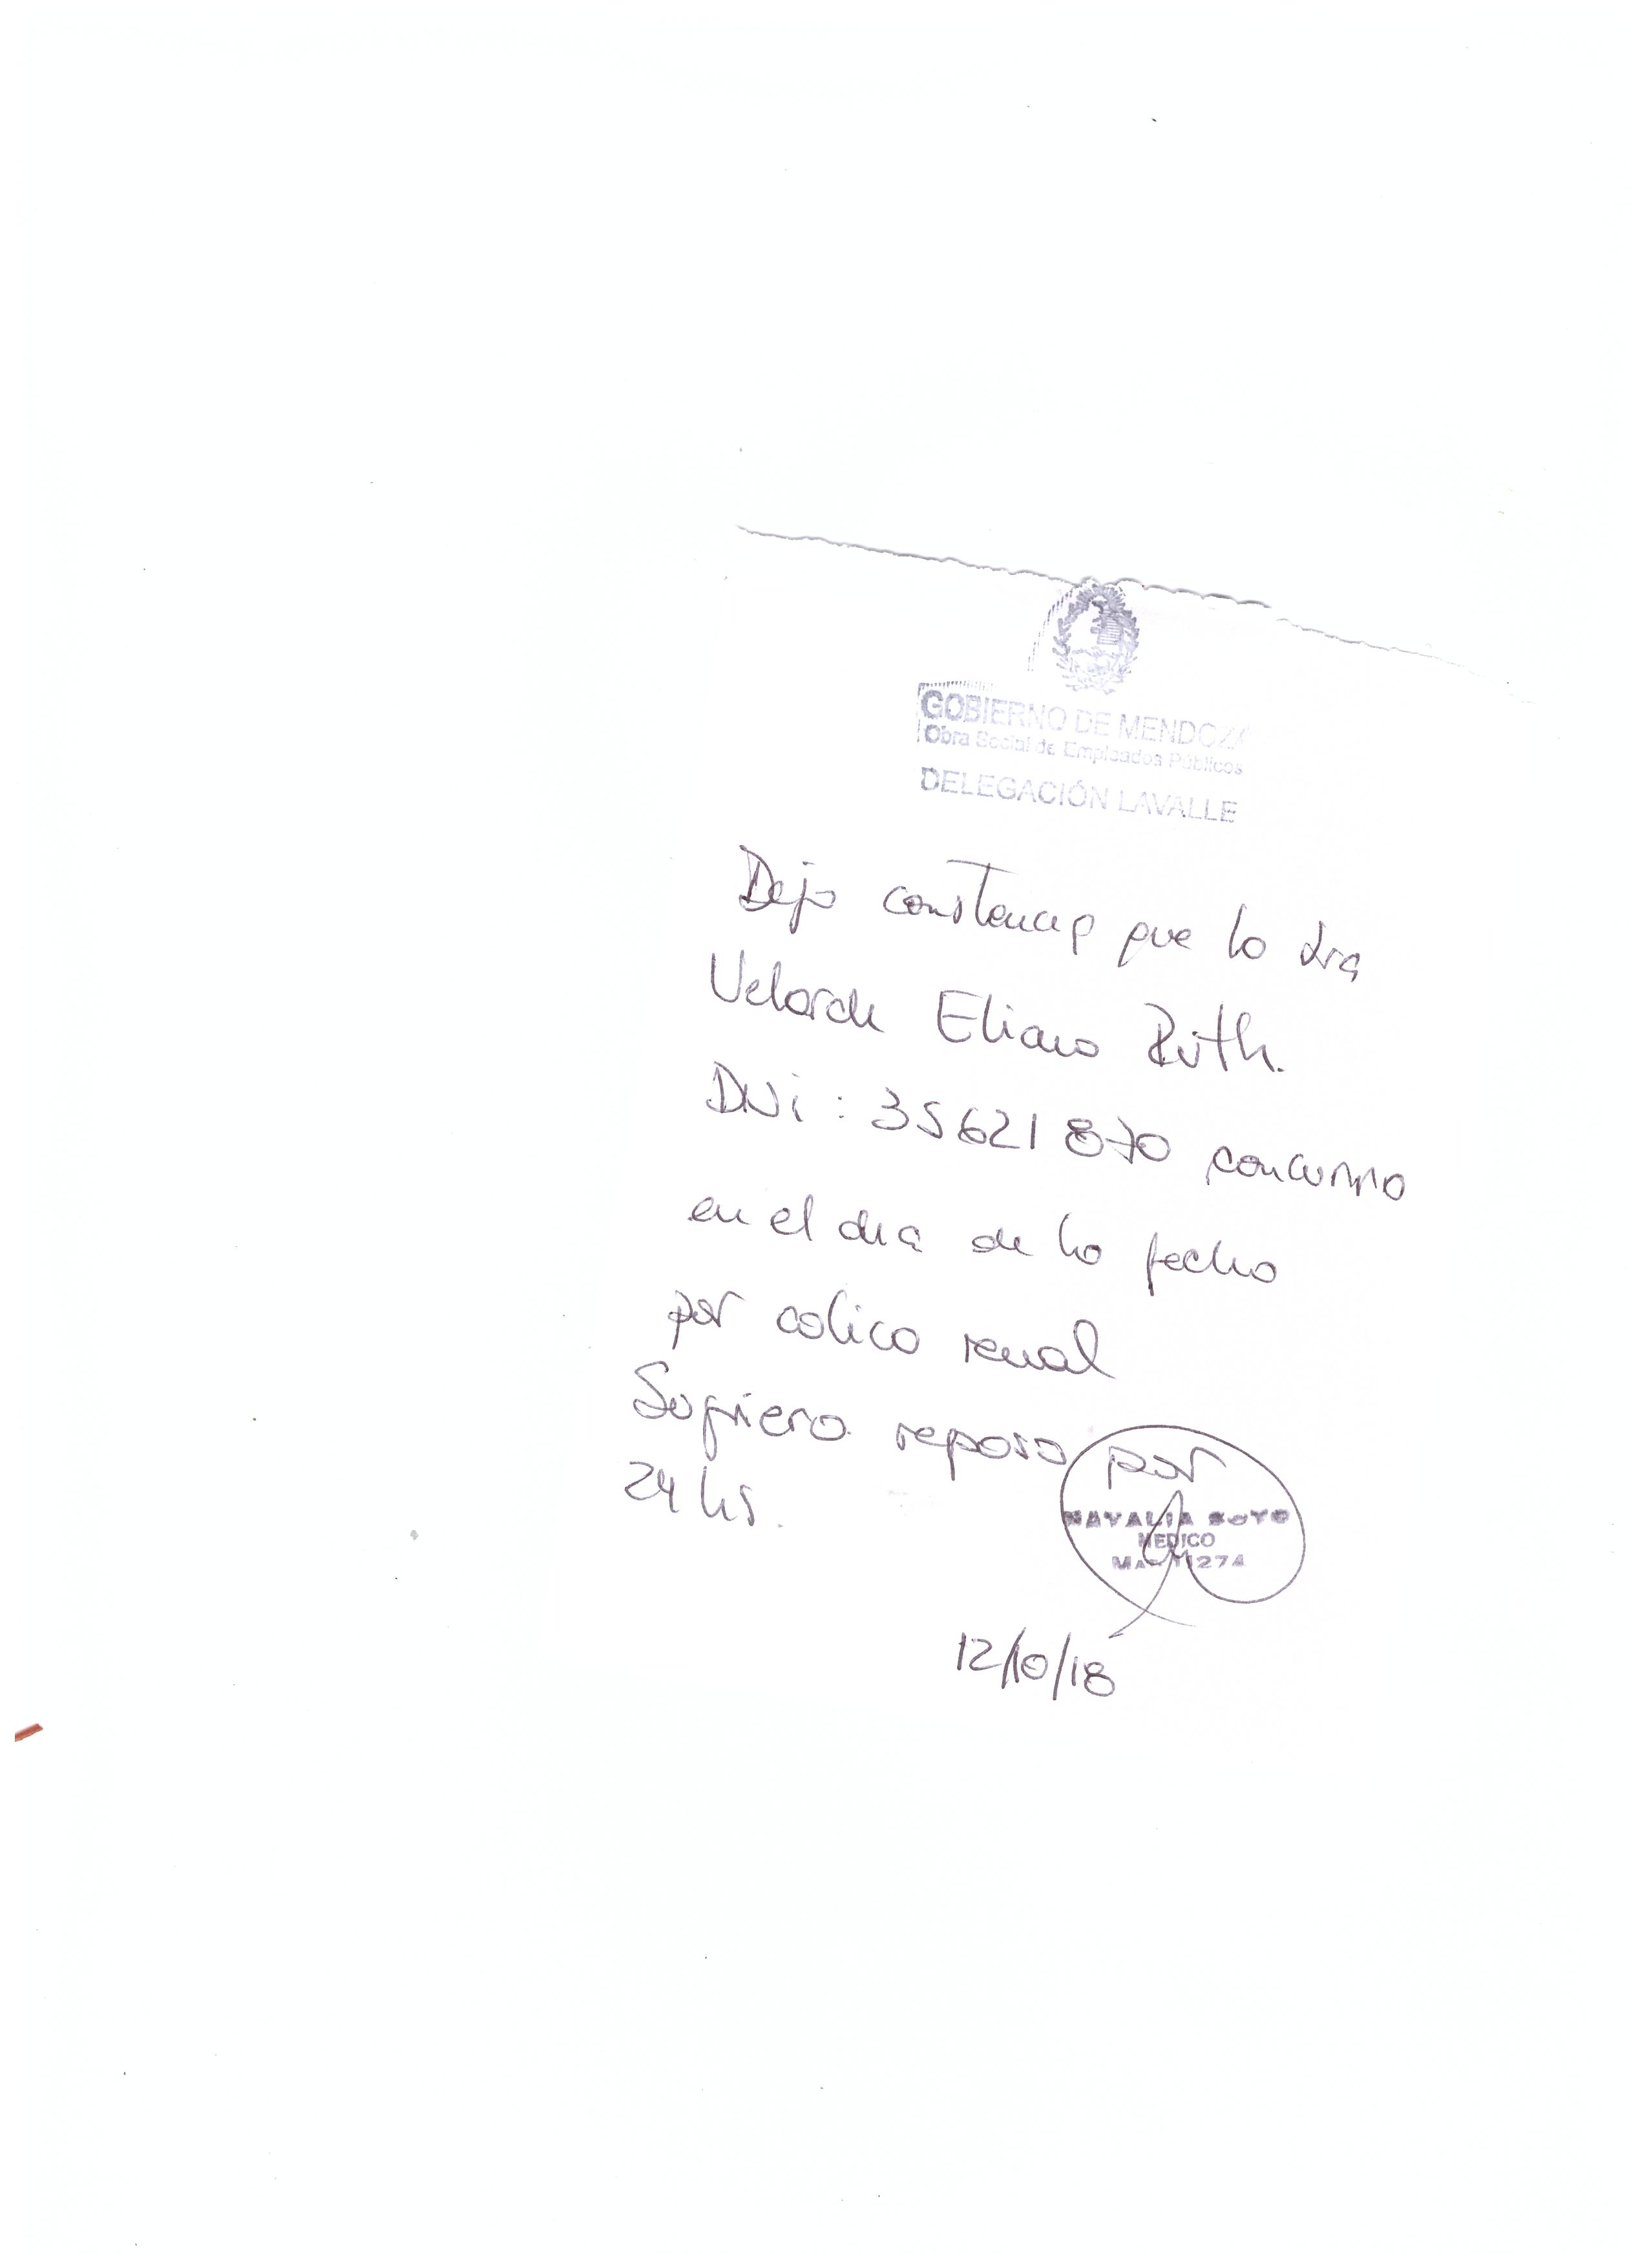 GOBIERNO DE MENDOZA
Obra Social de Empleados Públicos
DELEGACIÓN LAVALLE
Dejo constancia que la Sra
Velarde Eliana Ruth.
DNi: 35621870 concurrio
en el dia de la fecha
por colico renal
Sugiero reposo por
24 hs.
NATALIA SOTO
MEDICO
MAT 11274
12/10/18